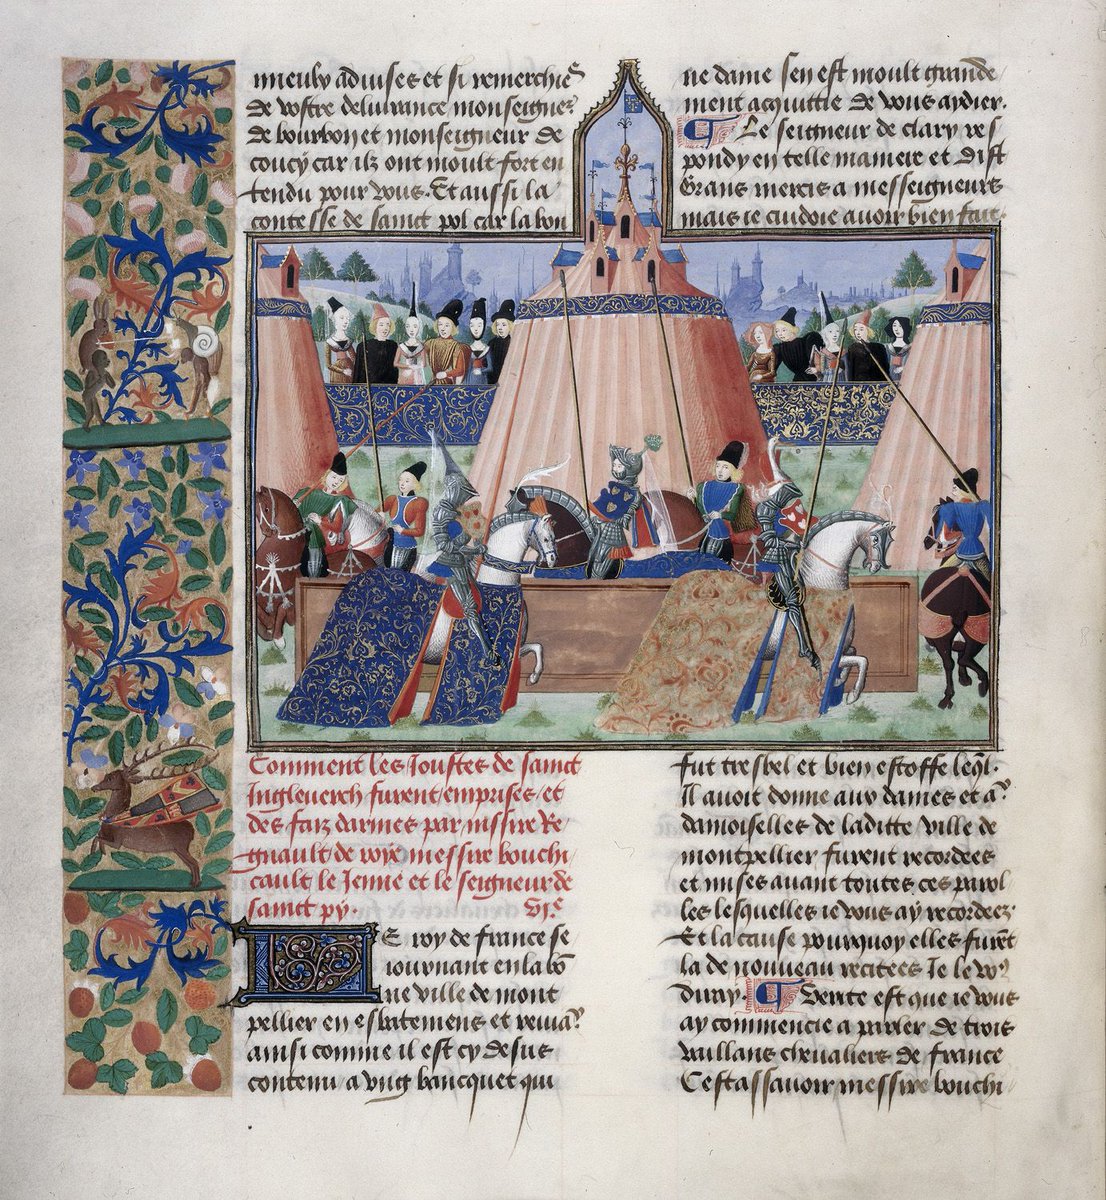 mieulx aduises et si remerchies
de vostre deliurance monseigneur
de bourbon et monseigneur de
coucy car ilz ont moult fort en
tendu pour vous. Et aussi la
contesse de sainct pol car la bon
ne dame sen est moult grande
ment acquittie de vous aydier.
Le seigneur de clary res
pondy en telle maniere et dist
Grans mercis a messeigneurs
mais ie cuidoie auoir bien fait.
Comment les Joustes de sainct
Ingleuerch furent emprises et
des faiz darmes par messire Re
gnault de roye messire bouchi
cault le Jenne et le seigneur de
sainct py.
LE roy de france se
iournant en la bonne
ville de mont
pellier en esbatemens et reuiaulx
ainsi comme il est cy desus
contenu a vng bancquet qui
fut tresbel et bien estoffe lequel
Il auoit donne aux dames et aux
damoiselles de laditte ville de
montpellier furent recordees
et mises auant toutes ces parol
les lesquelles ie vous ay recordez.
Et la cause pourquoy elles furent
la de nouueau recitees Je le vous
diray. Verite est que ie vous
ay commencie a parler de trois
vaillans cheualiers de france
Cestassauoir messire bouchi